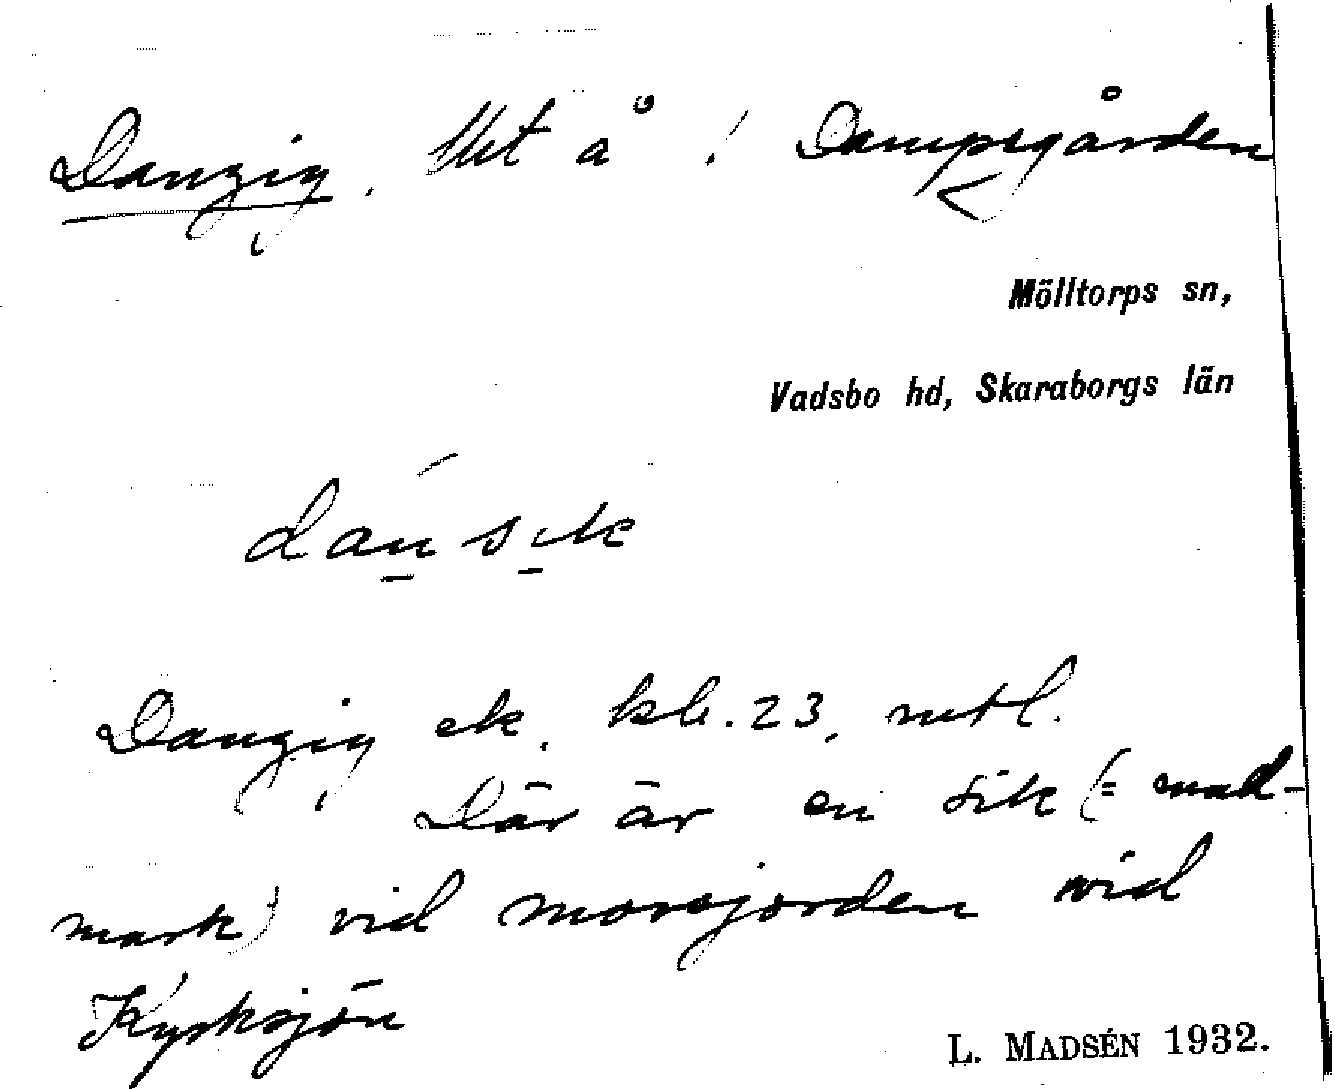 Danzig. Utt å ! Dampegården
Mölltorps sn,
Vadsbo hd, Skaraborgs län
dansik
Danzig ek. kb. 23, mtl.
Där är en sik (= mad-
mark) vid morsjorden vid
Kyrksjön
L. MADSÉN 1932.